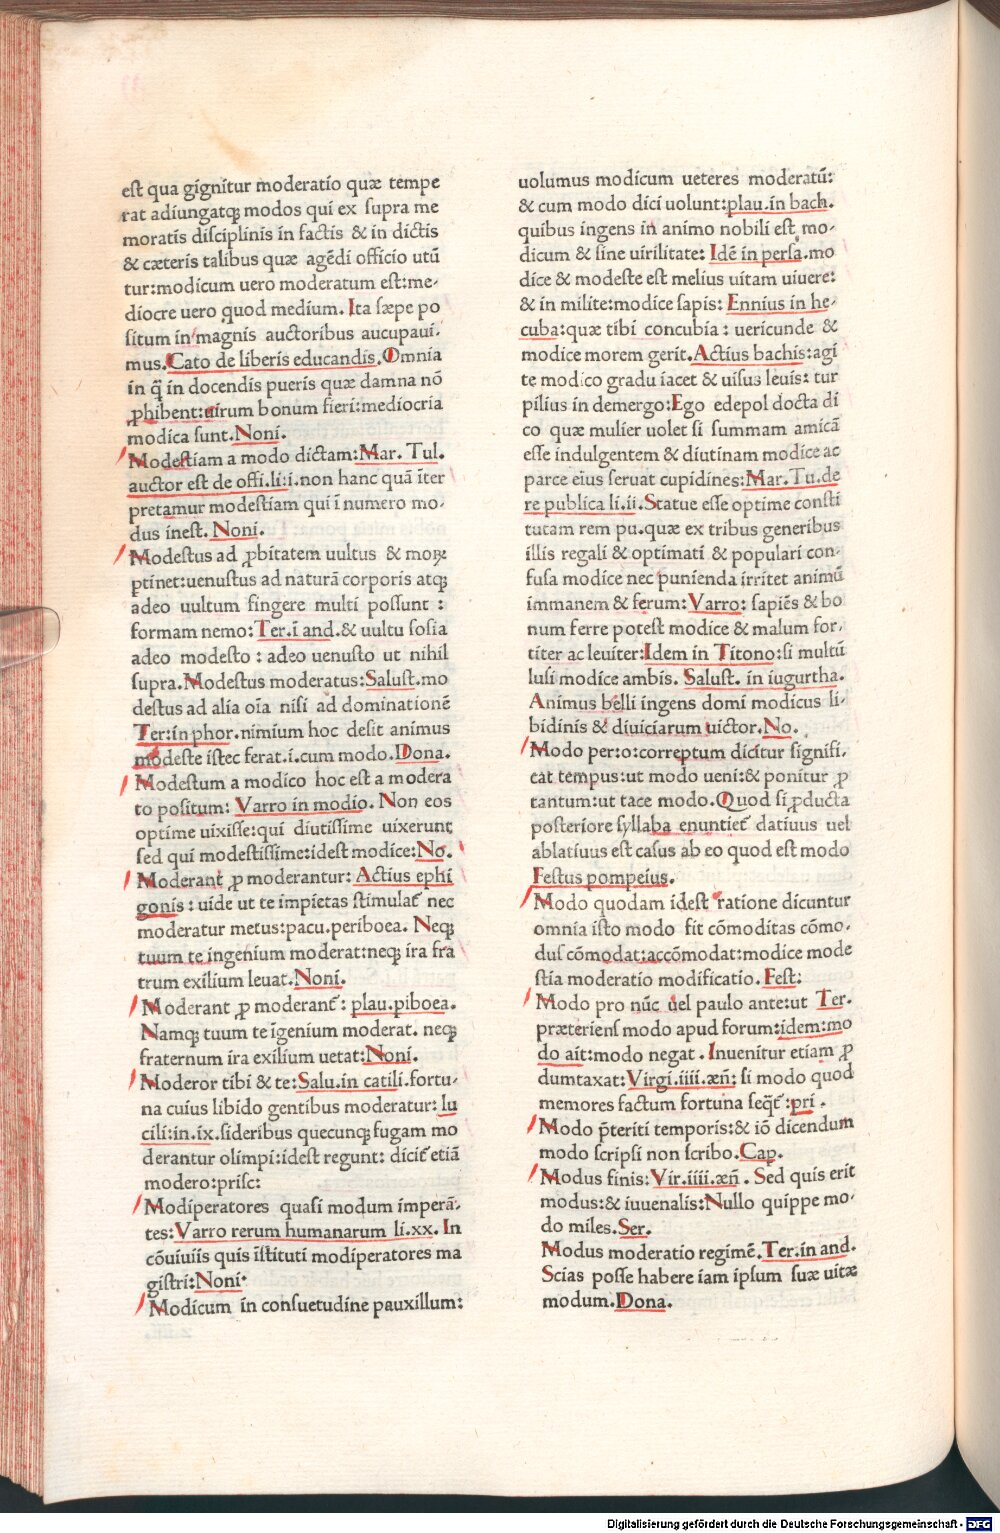 est qua gignitur moderatio quæ tempe
rat adiungatqꝫ modos qui ex supra me
moratis disciplinis in factis & in dictis
& cæteris talibus quæ agēdi officio utū
tur:modicum uero moderatum est:me-
diocre uero quod medium. Ita sæpe po
situm in magnis auctoribus aucupaui-
mus.Cato de liberis educandis.Omnia
in q̄ in docendis pueris quæ damna nō
ꝓhibent:uirum bonum fieri:mediocria
modica sunt.Noni.
Modestiam a modo dictam:Mar. Tul.
auctor est de offi.li:i.non hanc quā īter
pretamur modestiam qui ī numero mo-
dus inest. Noni.
Modestus ad ꝓbitatem uultus & moꝝ
ꝑtinet:uenustus ad naturā corporis atqꝫ
adeo uultum fingere multi possunt :
formam nemo:Ter.ī and.& uultu sosia
adeo modesto : adeo uenusto ut nihil
supra.Modestus moderatus:Salust.mo
destus ad alia oīa nisi ad dominationē
Ter:in phor.nimium hoc desit animus
modeste istec ferat.i.cum modo.Dona.
Modestum a modico hoc est a modera
to positum: Varro in modio. Non eos
optime uixisse:qui diutissime uixerunt
sed qui modestissime:idest modice:No.
Moderant ꝓ moderantur: Actius ephi
gonis : uide ut te impietas stimulat̄ nec
moderatur metus:pacu.periboea. Neqꝫ
tuum te ingenium moderat:neqꝫ ira fra
trum exilium leuat.Noni.
Moderant ꝓ moderant̄ : plau.piboea.
Namqꝫ tuum te īgenium moderat. neqꝫ
fraternum ira exilium uetat:Noni.
Moderor tibi & te:Salu.in catili.fortu-
na cuius libido gentibus moderatur: lu
cili:in.ix.sideribus quecunqꝫ fugam mo
derantur olimpi:idest regunt: dicit̄ etiā
modero:prisc:
Modiperatores quasi modum imperā-
tes:Varro rerum humanarum li.xx. In
cōuiuiis quis īstituti modiperatores ma
gistri:Noni·
Modicum in consuetudine pauxillum:
uolumus modicum ueteres moderatū:
& cum modo dici uolunt:plau.in bach.
quibus ingens in animo nobili est mo-
dicum & sine uirilitate: Idē in persa.mo
dice & modeste est melius uitam uiuere:
& in milite:modice sapis: Ennius in he-
cuba:quæ tibi concubia : uericunde &
modice morem gerit.Actius bachis:agi
te modico gradu iacet & uisus leuis: tur
pilius in demergo:Ego edepol docta di
co quæ mulier uolet si summam amicā
esse indulgentem & diutinam modice ac
parce eius seruat cupidines:Mar.Tu.de
re publica li.ii.Statue esse optime consti
tutam rem pu.quæ ex tribus generibus
illis regali & optimati & populari con-
fusa modice nec punienda irritet animū
immanem & ferum:Varro: sapiēs & bo
num ferre potest modice & malum for-
titer ac leuiter:Idem in Titono:si multū
lusi modice ambis. Salust. in iugurtha.
Animus belli ingens domi modicus li-
bidinis & diuiciarum uictor.No.
Modo per:o:correptum dicitur signifi-
cat tempus:ut modo ueni:& ponitur ꝓ
tantum:ut tace modo.Quod si ꝓducta
posteriore syllaba enuntiet̄ datiuus uel
ablatiuus est casus ab eo quod est modo
Festus pompeius.
Modo quodam idest ratione dicuntur
omnia isto modo fit cōmoditas cōmo-
dus cōmodat:accōmodat:modice mode
stia moderatio modificatio. Fest:
Modo pro nūc uel paulo ante:ut Ter.
præteriens modo apud forum:idem:mo
do ait:modo negat . Inuenitur etiam ꝓ
dumtaxat:Virgi.iiii.æn̄: si modo quod
memores factum fortuna seqt̄ :pri .
Modo p̄teriti temporis:& iō dicendum
modo scripsi non scribo.Cap.
Modus finis: Vir.iiii.æn̄ . Sed quis erit
modus:& iuuenalis:Nullo quippe mo-
do miles.Ser.
Modus moderatio regimē.Ter.in and.
Scias posse habere iam ipsum suæ uitæ
modum.Dona.
Digitalisierung gefördert durch die Deutsche Forschungsgemeinschaft - DFG